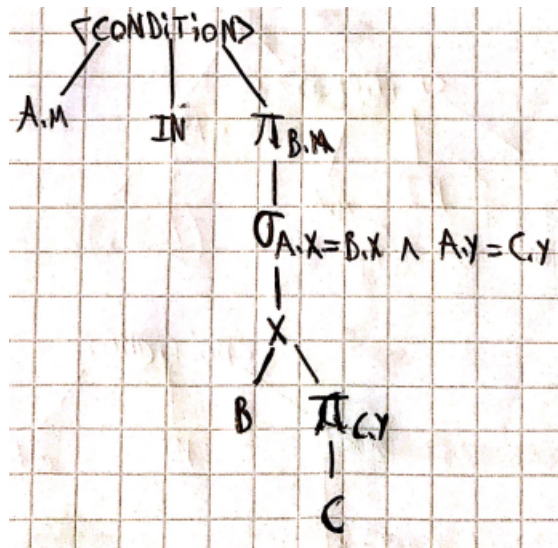 <CONDITION>
A.M IN π B.M
σ A.X=B.X ∧ A.Y=C.Y
X
B π C.Y
C